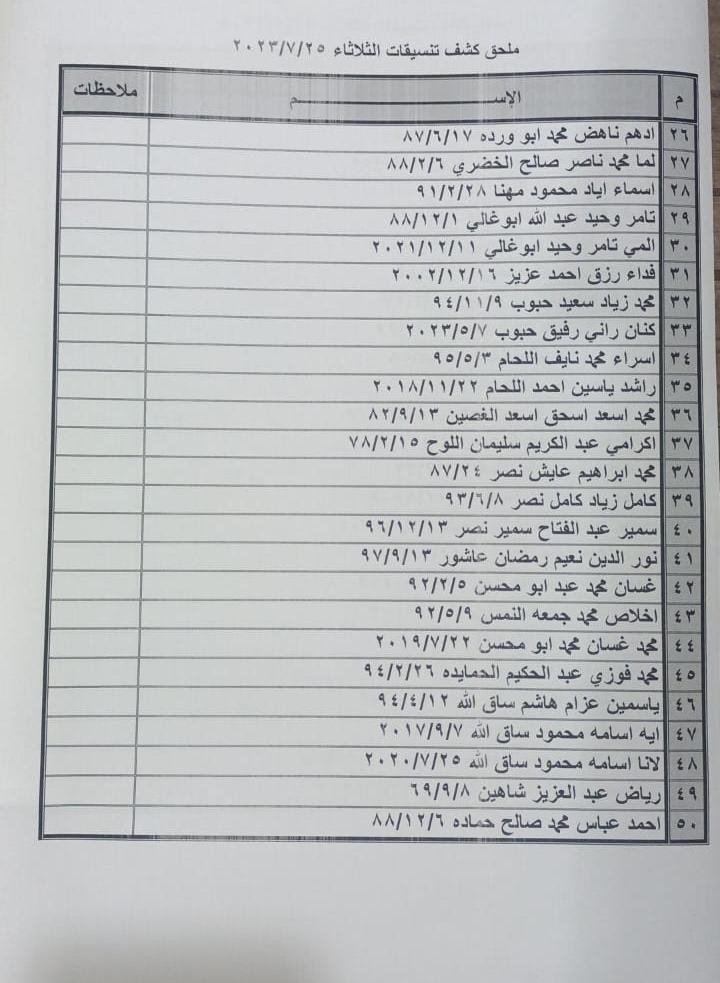 ملحق كشف تنسيقات الثلاثاء ٢٠٢٣/٧/٢٥
م الإســـــــــم ملاحظات
٢٦ ادهم ناهض محمد ابو ورده ٨٧/٦/١٧
٢٧ لما محمد ناصر صالح الخضري ٨٨/٢/٦
٢٨ اسماء اياد محمود مهنا ٩١/٢/٢٨
٢٩ تامر وحيد عبد الله ابوغالي ٨٨/١٢/١
٣٠ المي تامر وحيد ابوغالي ٢٠٢١/١٢/١١
٣١ فداء رزق احمد عزيز ٢٠٠٢/١٢/١٦
٣٢ محمد زياد سعيد حبوب ٩٤/١١/٩
٣٣ كنان راني رفيق حبوب ٢٠٢٣/٥/٧
٣٤ اسراء محمد نايف اللحام ٩٥/٥/٣
٣٥ راشد ياسين احمد اللحام ٢٠١٨/١١/٢٢
٣٦ محمد اسعد اسحق اسعد الغصين ٨٢/٩/١٣
٣٧ اكرامي عبد الكريم سليمان اللوح ٧٨/٢/١٥
٣٨ محمد ابراهيم عايش نصر ٨٧/٢٤
٣٩ كامل زياد كامل نصر ٩٣/٦/٨
٤٠ سمير عبد الفتاح سمير نصر ٩٦/١٢/١٣
٤١ نور الدين نعيم رمضان عاشور ٩٧/٩/١٣
٤٢ غسان محمد عبد ابو محسن ٩٢/٢/٥
٤٣ اخلاص محمد جمعه النمس ٩٢/٥/٩
٤٤ محمد غسان محمد ابو محسن ٢٠١٩/٧/٢٢
٤٥ محمد فوزي عبد الحكيم الحمايده ٩٤/٢/٢٦
٤٦ ياسمين عزام هاشم ساق الله ٩٤/٤/١٢
٤٧ ايه اسامه محمود ساق الله ٢٠١٧/٩/٧
٤٨ لانا اسامه محمود ساق الله ٢٠٢٠/٧/٢٥
٤٩ رياض عبد العزيز شاهين ٦٩/٩/٨
٥٠ احمد عباس محمد صالح حماده ٨٨/١٢/٦